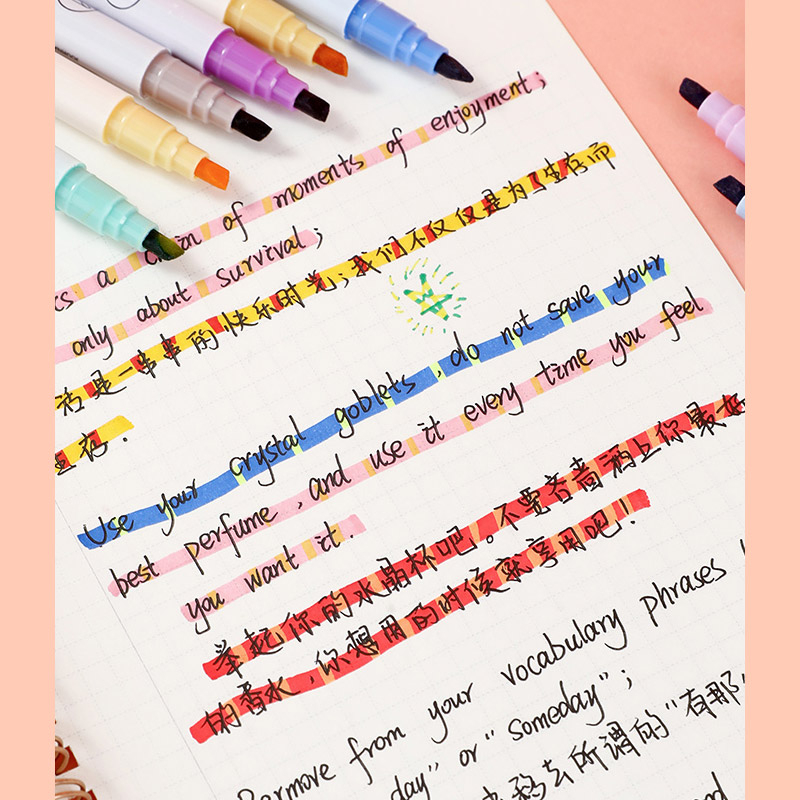 a chain of moments of enjoyment;
only about survival;
活是一串串的快乐时光;我们不仅仅是为了生存而
生存.
Use your crystal goblets, do not save your
best perfume, and use it every time you feel
you want it.
举起你的水晶杯吧。不要吝啬洒上你最好
的香水,你想用的时候就享用吧!
Remove from your vocabulary phrases
day" or "someday";
去所谓的"有那